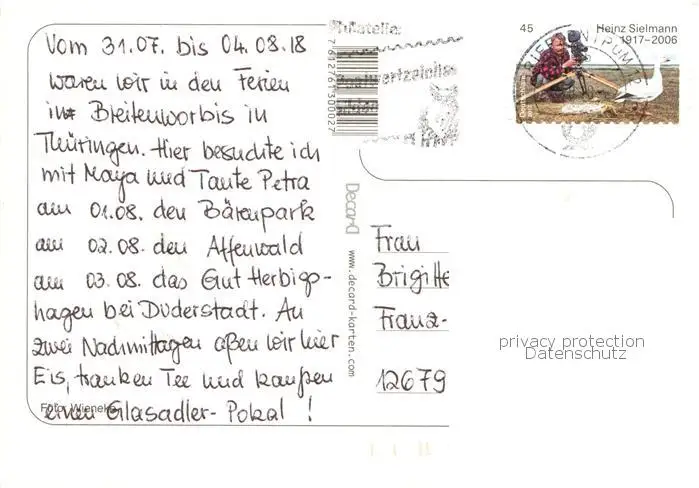 Vom 31.07. bis 04.08.18
waren wir in den Ferien
in Breitenworbis in
Thüringen. Hier besuchte ich
mit Maya und Tante Petra
am 01.08. den Bärenpark
am 02.08. den Affenwald
am 03.08. das Gut Herbigs-
hagen bei Duderstadt. An
zwei Nachmittagen aßen wir hier
Eis, tranken Tee und kauften
einen Glasadler-Pokal !
Foto: Wieneke
Philatelie
Postwertzeichen
7612761300027
DecarD www.decard-karten.com
45
Heinz Sielmann
1917–2006
BRIEFZENTRUM
Frau
Brigitte
Franz-
12679
privacy protection
Datenschutz